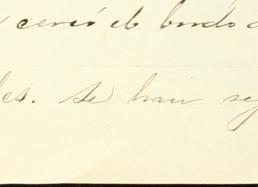 cercó el bordo
les. Se han reg